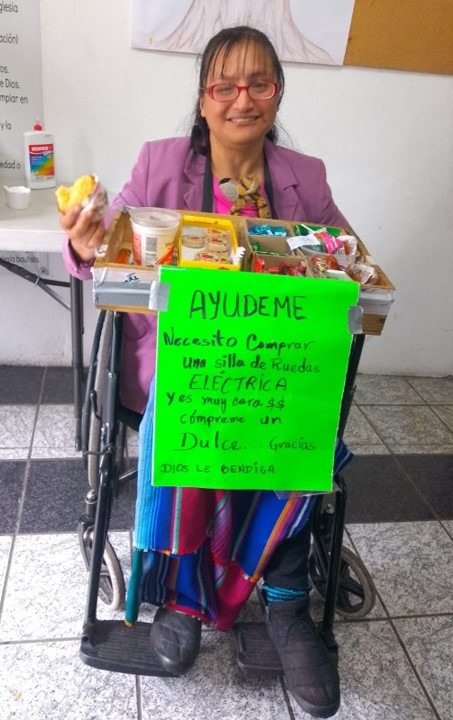 glesia
ación)
os.
e Dios.
emplar en
y la
edad o
glesia bautista.
AYUDEME
Necesito Comprar
una silla de Ruedas
ELÉCTRICA
y es muy cara $$
cómpreme un
Dulce... Gracias
DIOS LE BENDIGA